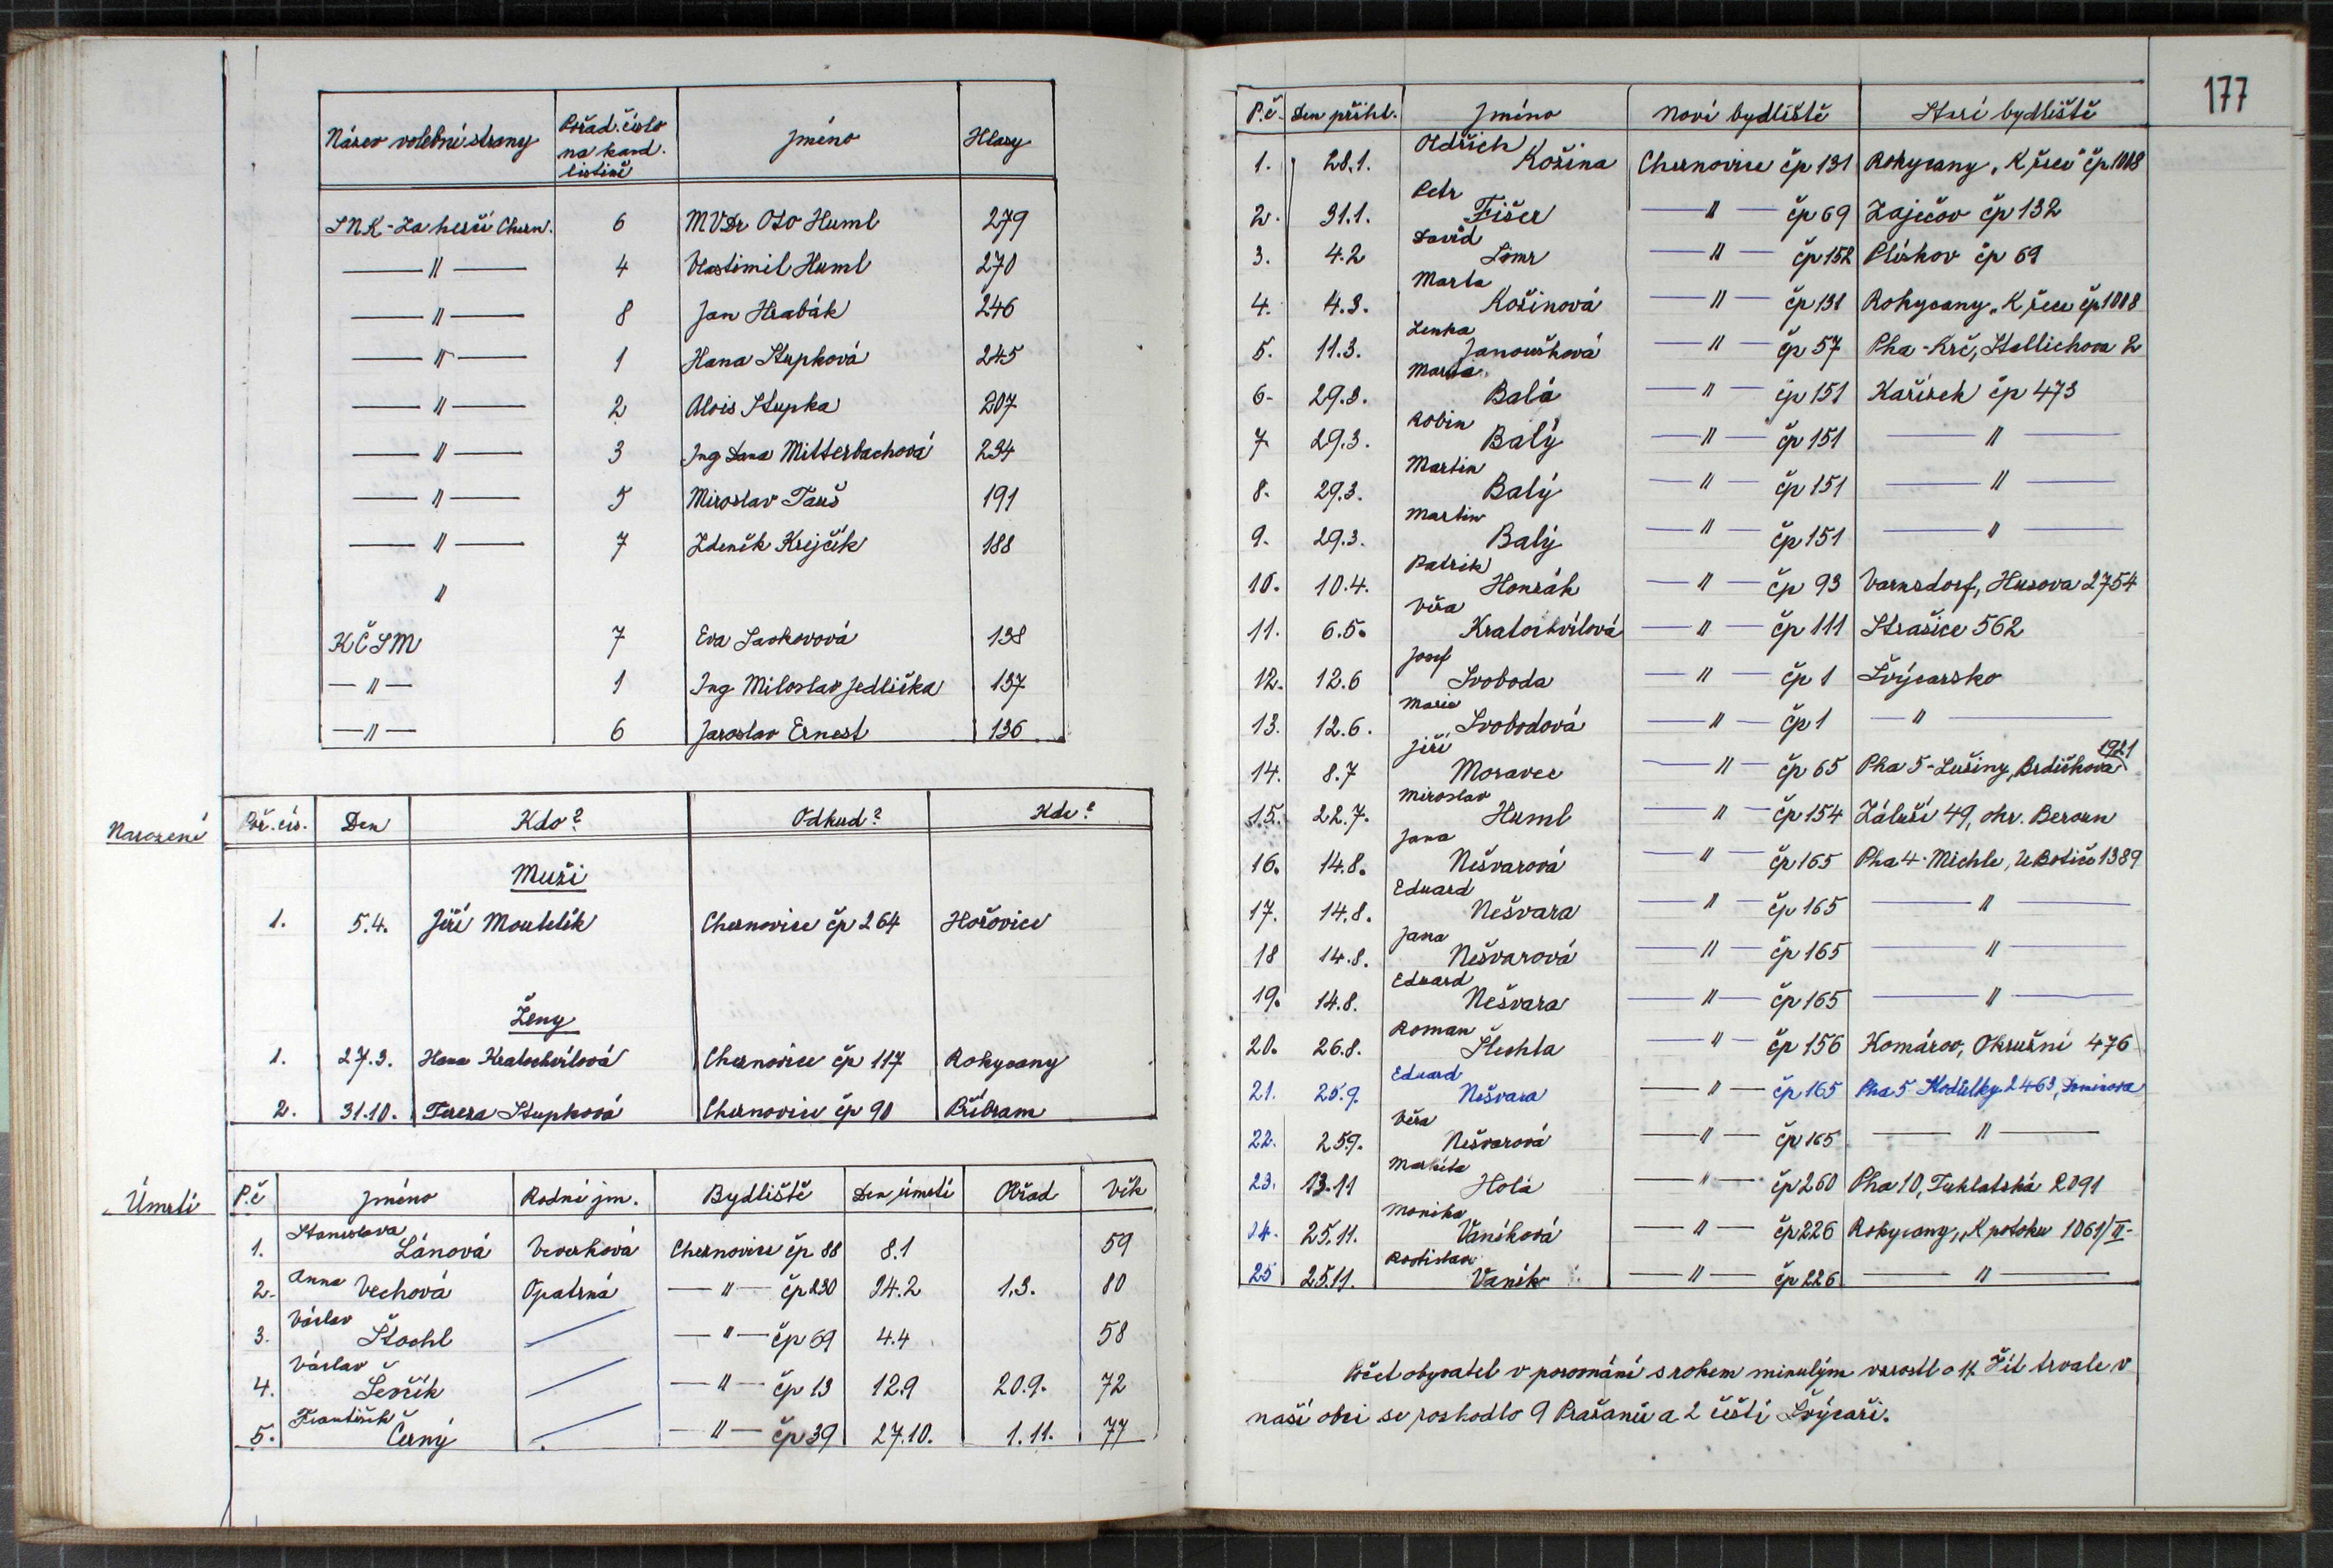 Název volební strany | Pořad. číslo na kand. listině | Jméno | Hlasy
SNK - Za hezčí Chezn. | 6 | MVDr Oto Huml | 279
— " — | 4 | Vlastimil Huml | 270
— " — | 8 | Jan Hrabák | 246
— " — | 1 | Hana Stupková | 245
— " — | 2 | Alois Stupka | 207
— " — | 3 | Ing Dana Mitterbachová | 234
— " — | 5 | Miroslav Tauš | 191
— " — | 7 | Zdeněk Krejčík | 188
"
KČSM | 7 | Eva | 138
— " — | 1 | Ing Miloslav Jedlička | 137
— " — | 6 | Jaroslav Ernest | 136
Narození
Poř. čís. | Den | Kdo? | Odkud? | Kde?
Muži
1. | 5.4. | Jiří Moutelík | Cheznovice čp 264 | Hořovice
Ženy
1. | 27.3. | Hana Kratochvílová | Cheznovice čp 117 | Rokycany
2. | 31.10. | Tereza Stupková | Cheznovice čp 90 | Příbram
Úmrtí
P.č | Jméno | Rodné jm. | Bydliště | Den úmrtí | Obřad | Věk
1. | Stanislava Lánová | Veverková | Cheznovice čp 88 | 8.1 | | 59
2. | Anna Vechová | Opatrná | — " — čp 230 | 24.2 | 1.3. | 80
3. | Václav Štochl | — | — " — čp 69 | 4.4 | | 58
4. | Václav Ševčík | — | — " — čp 13 | 12.9 | 20.9. | 72
5. | František Černý | — | — " — čp 39 | 27.10. | 1.11. | 77
177
P.č. | Den přihl. | Jméno | Nové bydliště | Staré bydliště
1. | 28.1. | Oldřich Kožina | Cheznovice čp 131 | Rokycany „K řece" čp 1018
2. | 31.1. | Petr Fišer | — " — čp 69 | Zaječov čp 132
3. | 4.2 | David | — " — čp 152 | Plískov čp 69
4. | 4.3. | Marta Kožinová | — " — čp 131 | Rokycany „K řece čp 1018
5. | 11.3. | Lenka Janoušková | — " — čp 57 | Pha - Krč, Štúrova 2
6. | 29.3. | Marta Balá | — " — čp 151 | Kařízek čp 473
7 | 29.3. | Robin Balý | — " — čp 151 | — " —
8. | 29.3. | Martin Balý | — " — čp 151 | — " —
9. | 29.3. | Martin Balý | — " — čp 151 | — " —
10. | 10.4. | Patrik Honzák | — " — čp 93 | Varnsdorf, Husova 2754
11. | 6.5. | Věra Kratochvílová | — " — čp 111 | Strašice 562
12. | 12.6 | Josef Svoboda | — " — čp 1 | Švýcarsko
13. | 12.6. | Marie Svobodová | — " — čp 1 | — " —
14. | 8.7 | Jiří Moravec | — " — čp 65 | Pha 5 - Lužiny, Brdičkova 1921
15. | 22.7. | Miroslav Huml | " — čp 154 | Záluží 49, okr. Beroun
16. | 14.8. | Jana Nešvarová | — " — čp 165 | Pha 4 - Michle, U Botiče 1389
17. | 14.8. | Eduard Nešvara | — " — čp 165 | — " —
18 | 14.8. | Jana Nešvarová | — " — čp 165 | — " —
19. | 14.8. | Eduard Nešvara | — " — čp 165 | — " —
20. | 26.8. | Roman Šlechta | — " — čp 156 | Komárov, Okružní 476
21. | 25.9. | Eduard Nešvara | — " — čp 165 | Pha 5 Stodůlky 2463,
22. | 25.9. | Věra Nešvarová | — " — čp 165 | — " —
23. | 13.11 | Markéta Holá | — " — čp 260 | Pha 10, Tuklatská 2091
24. | 25.11. | Monika Vaníková | — " — čp 226 | Rokycany, „K potoku 1061/II -
25 | 25.11. | Rostislav Vaník | — " — čp 226 | — " —
Počet obyvatel v porovnání s rokem minulým vzrostl o 17. Žít trvale v
naší obci se rozhodlo 9 Pražanů a 2 čeští Švýcaři.